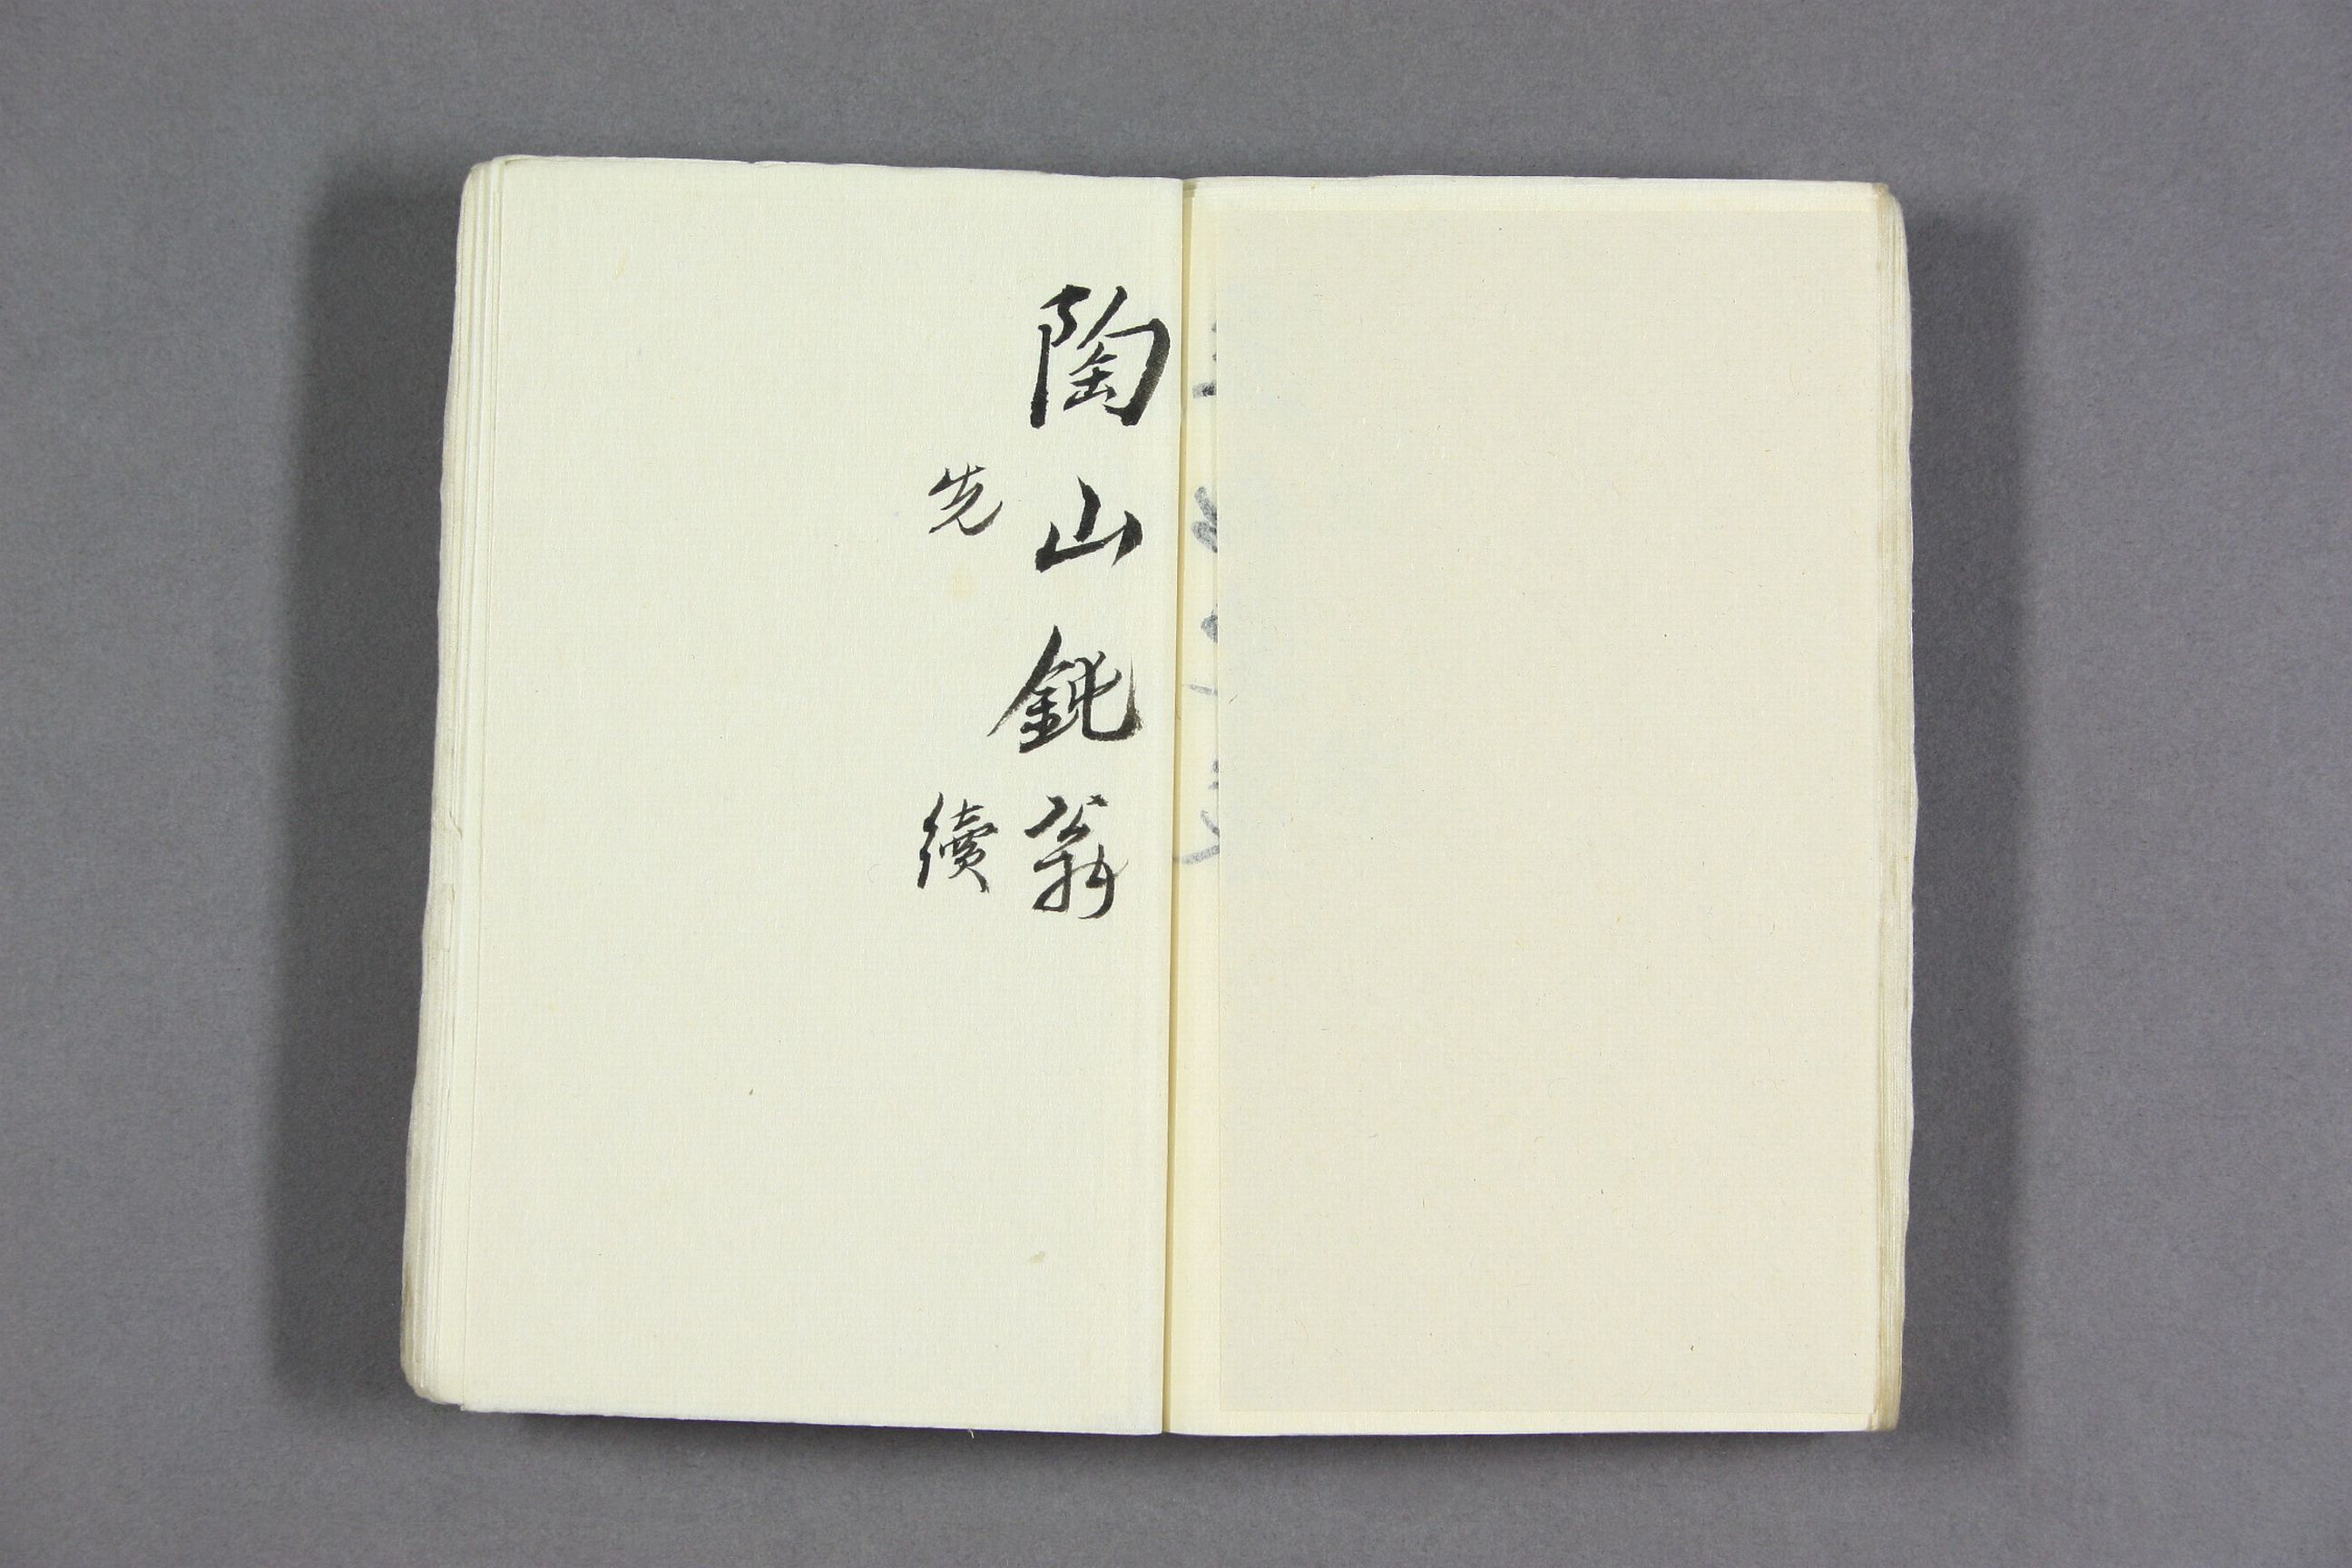 陶山鈍翁
先 續